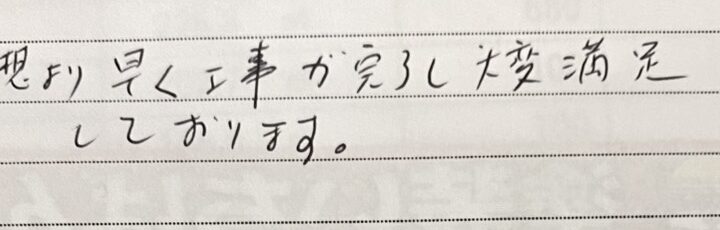 想より早く工事が完了し大変満足
しております。